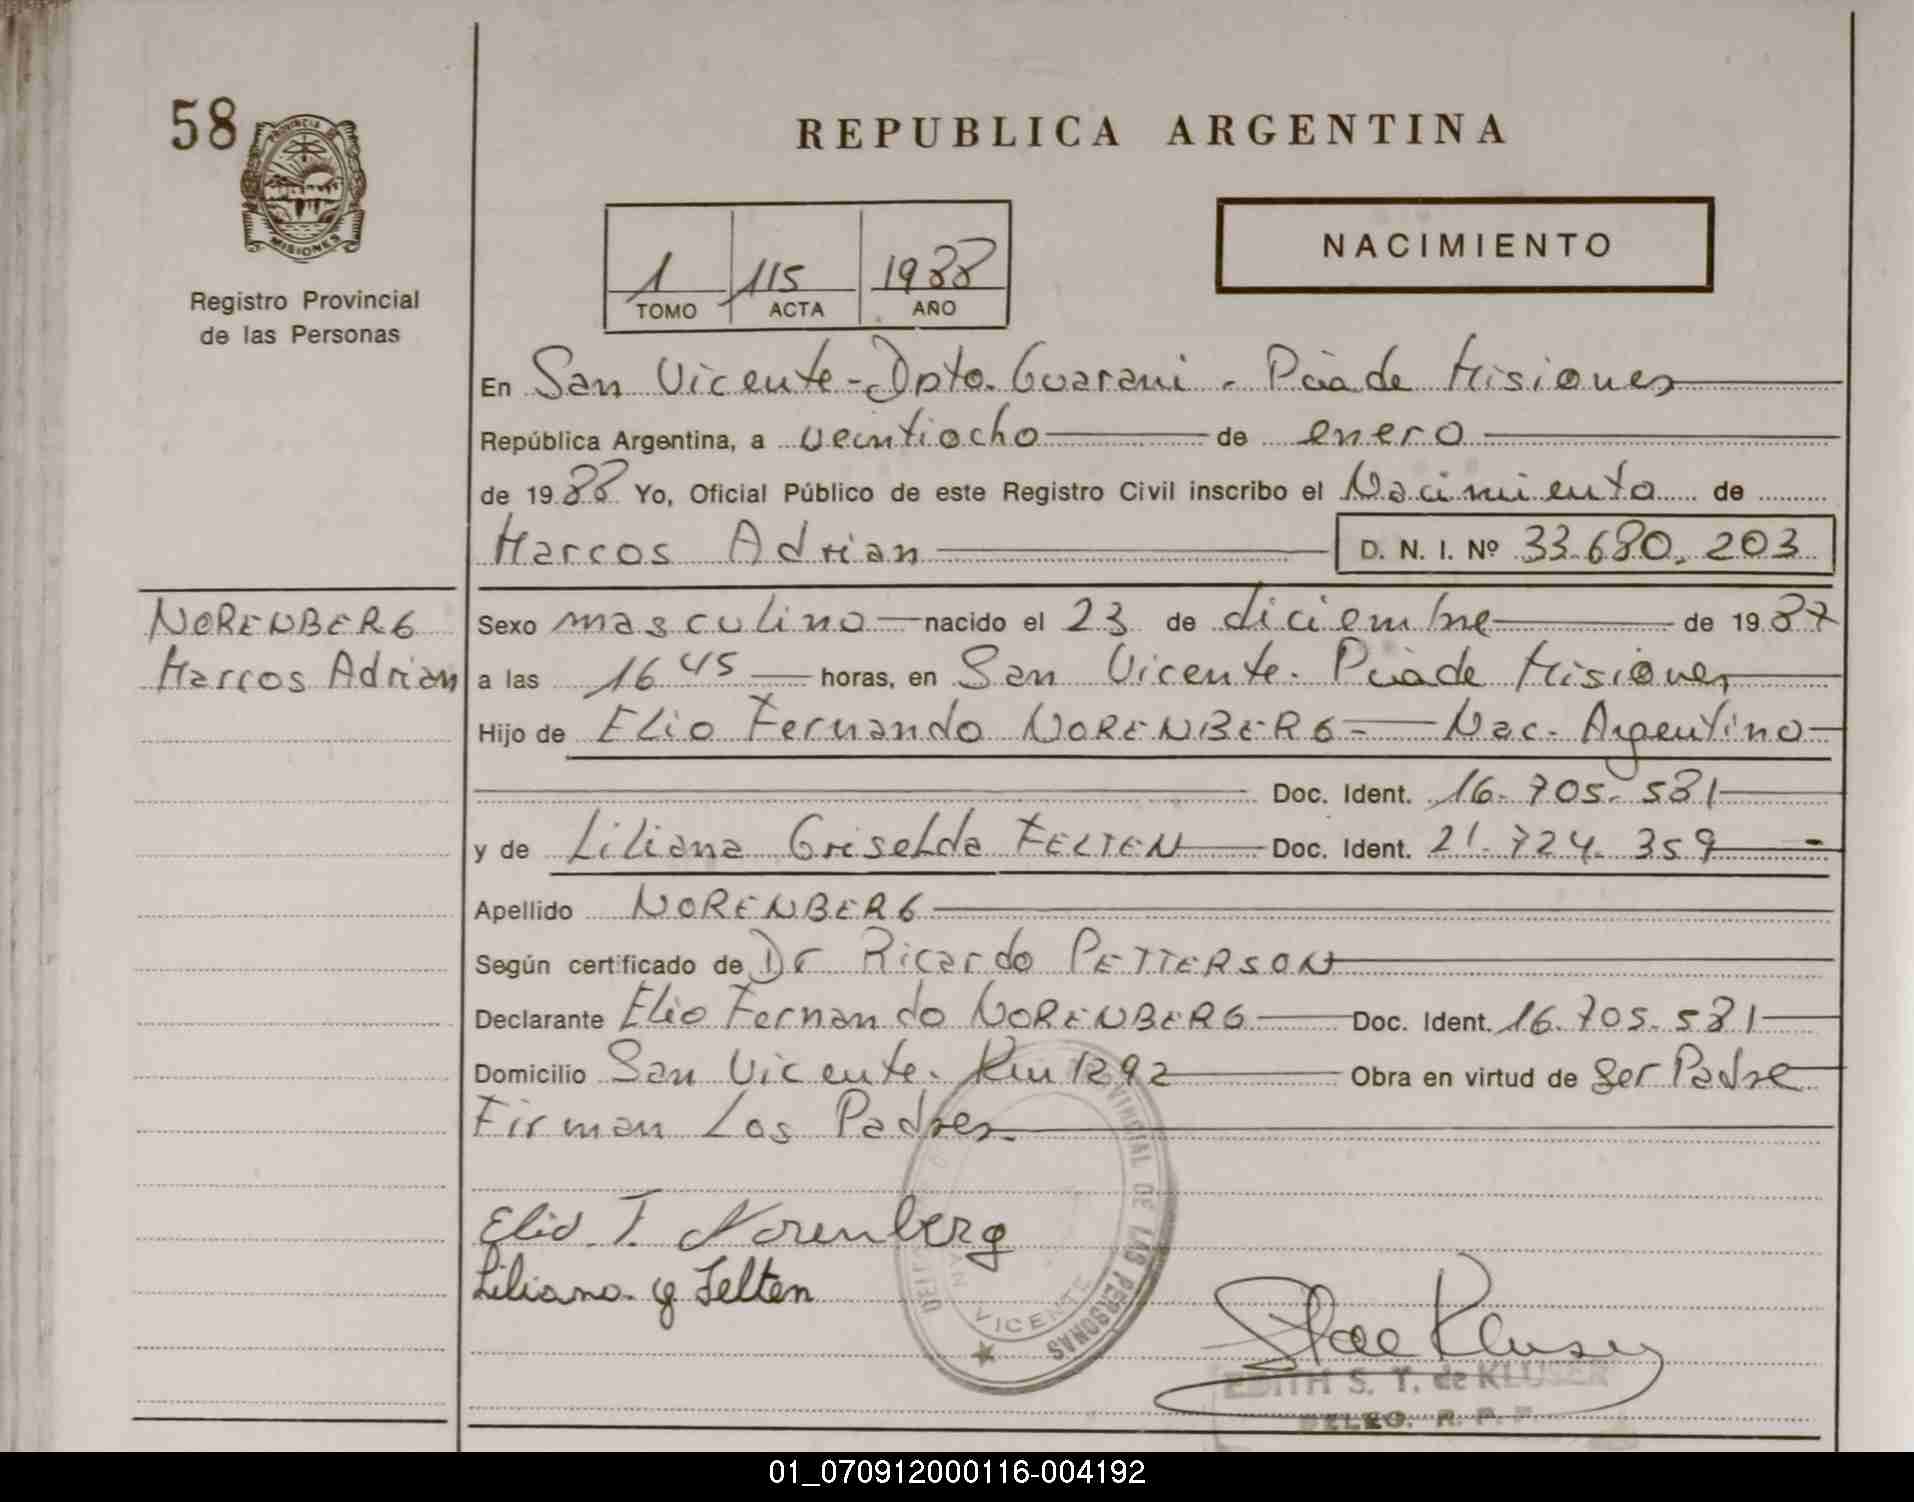 58
PROVINCIA DE
MISIONES
Registro Provincial
de las Personas
REPUBLICA ARGENTINA
1 115 1988
TOMO ACTA AÑO
NACIMIENTO
En San Vicente - Dpto. Guarani - Pcia de Misiones
República Argentina, a veintiocho de enero
de 1988 Yo, Oficial Público de este Registro Civil inscribo el Nacimiento de
Marcos Adrian D. N. I. Nº 33.680.203
NORENBERG
Marcos Adrian
Sexo masculino nacido el 23 de diciembre de 1987
a las 16 45 horas, en San Vicente. Pcia de Misiones
Hijo de Elio Fernando NORENBERG - Nac. Argentino
Doc. Ident. 16.705.581
y de Liliana Griselda FELTEN Doc. Ident. 21.724.359 -
Apellido NORENBERG
Según certificado de Dr Ricardo PETTERSON
Declarante Elio Fernando NORENBERG Doc. Ident. 16.705.581
Domicilio San Vicente. Km 1292 Obra en virtud de Ser Padre
Firman Los Padres.
Elio. F. Norenberg
Liliana. G Felten
VINCIAL DE LAS PERSONAS
VICENTE
EDITH S. T. de KLUSER
DELEG. R. P. P.
01_070912000116-004192